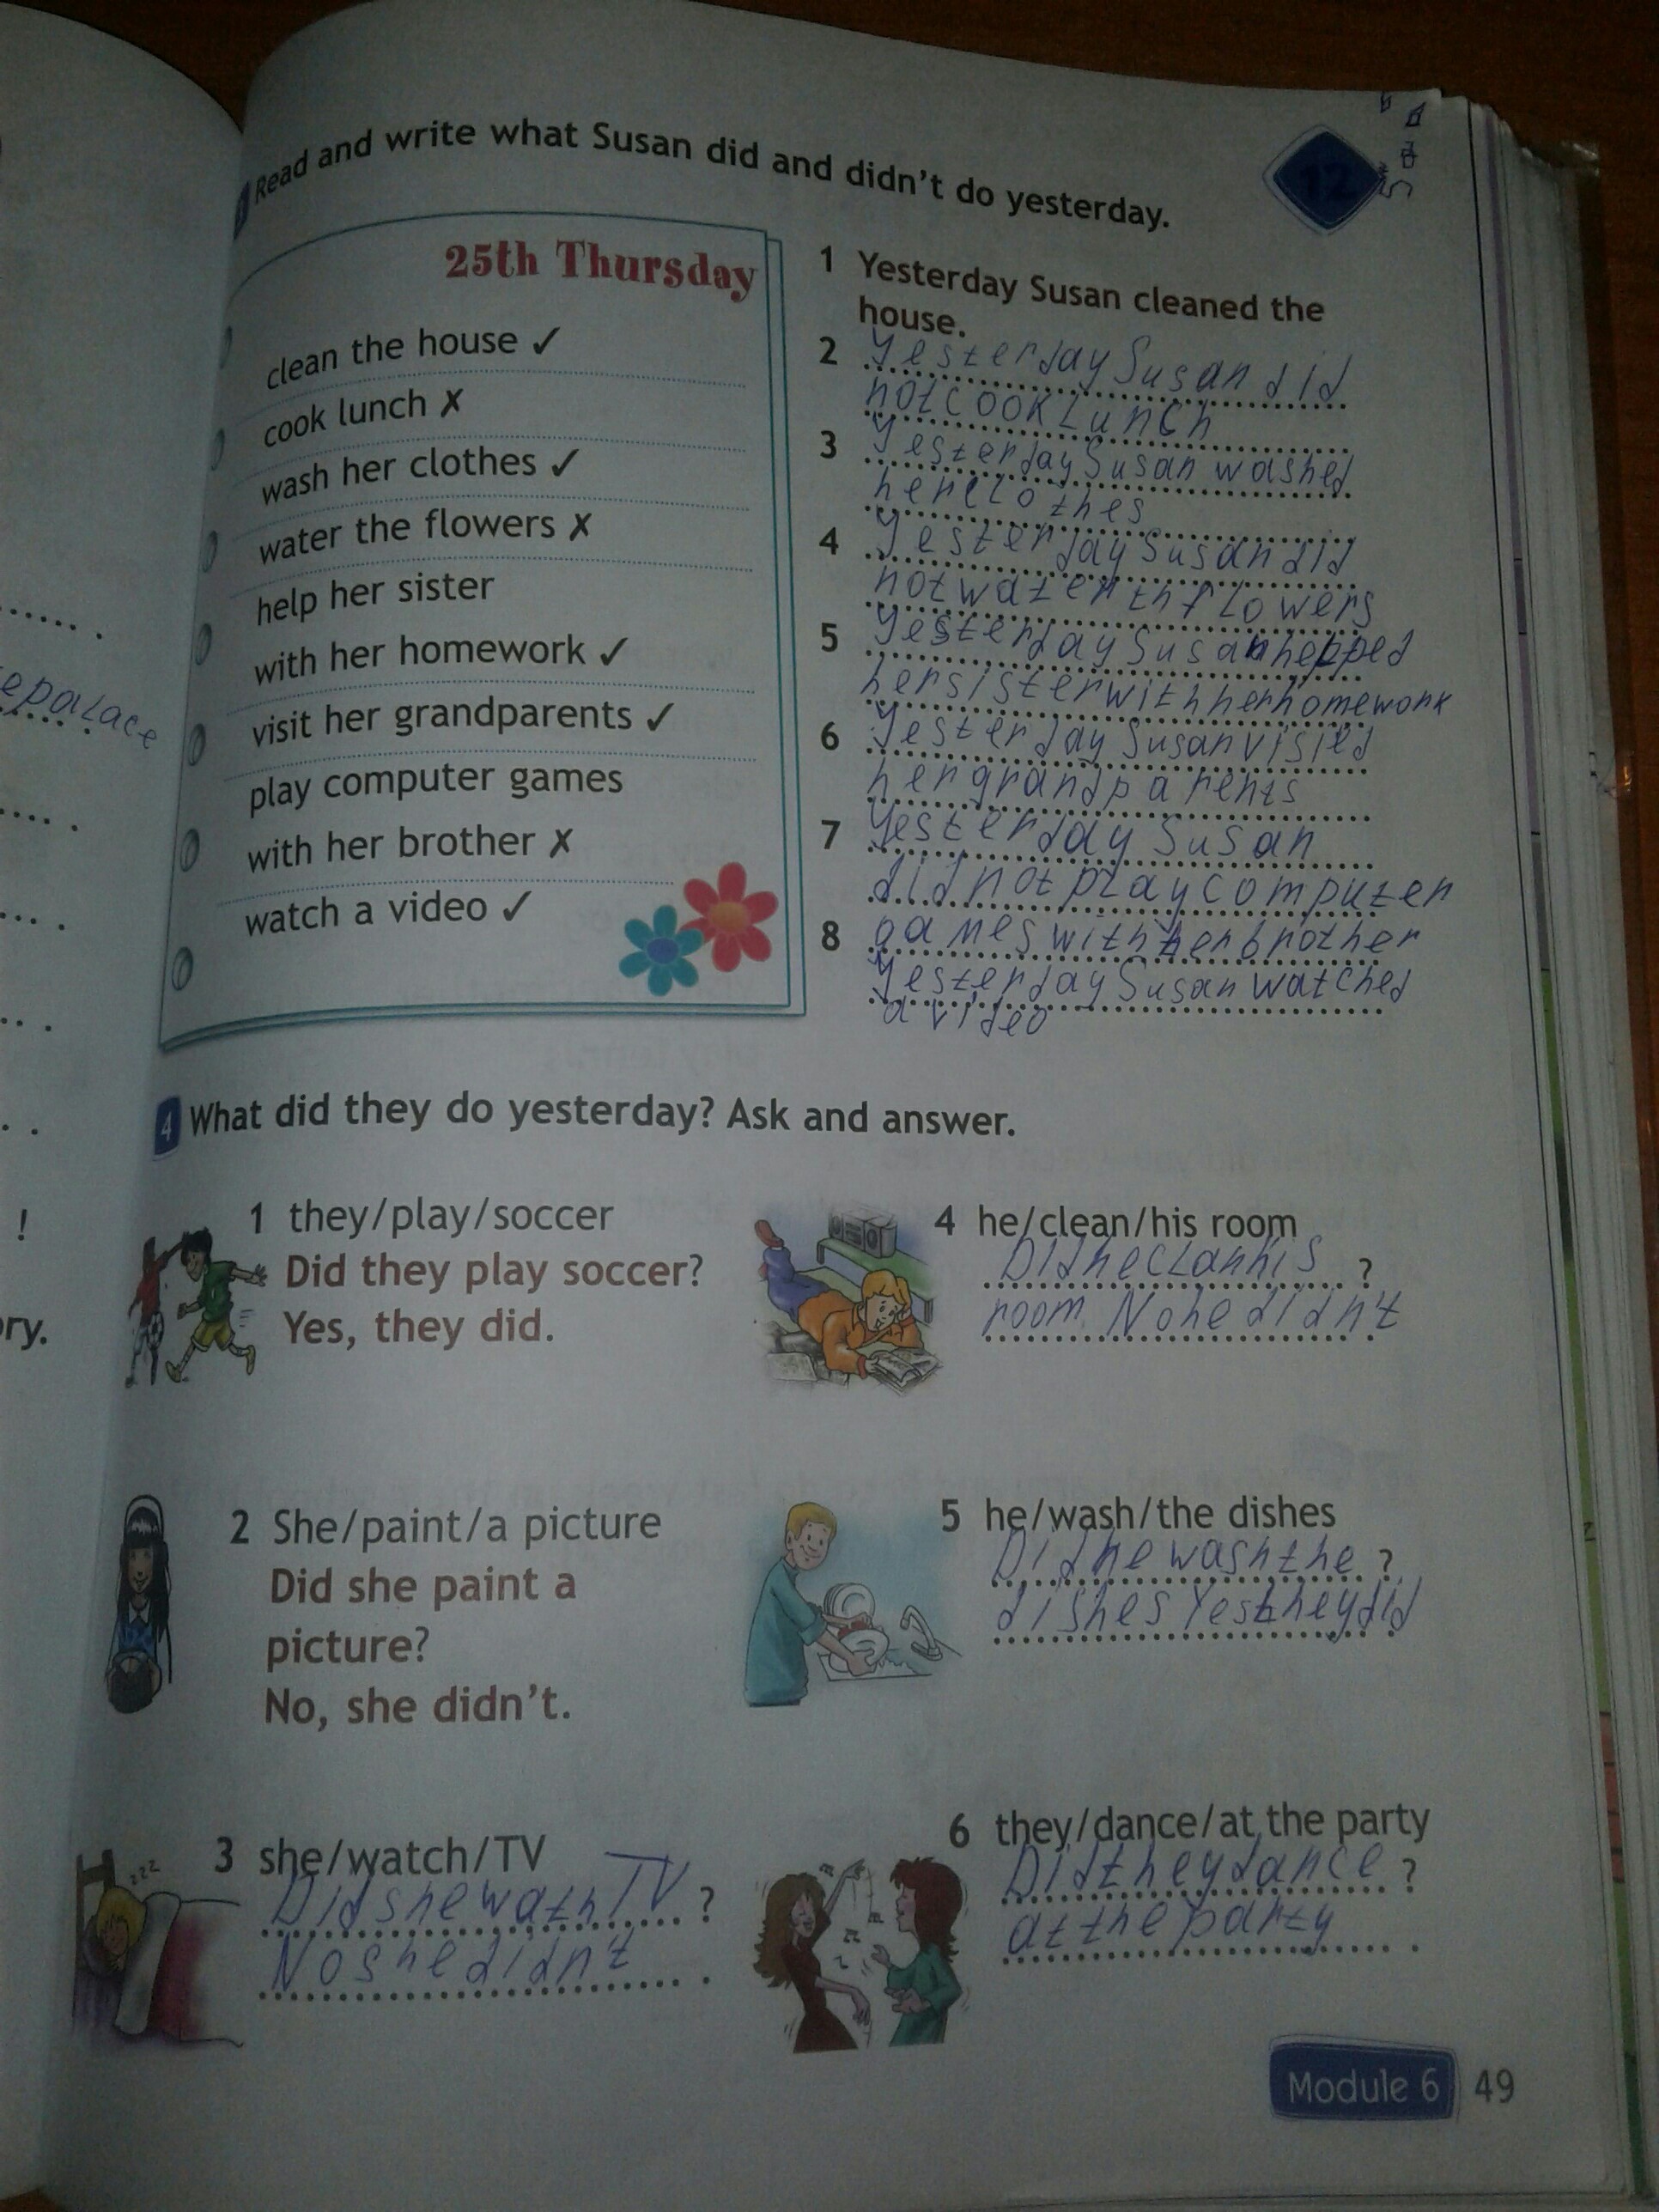 Read and write what Susan did and didn't do yesterday.
12
25th Thursday
clean the house ✓
cook lunch ✗
wash her clothes ✓
water the flowers ✗
help her sister
with her homework ✓
visit her grandparents ✓
play computer games
with her brother ✗
watch a video ✓
1 Yesterday Susan cleaned the
house.
2 Yesterday Susan did
not cook Lunch
3 Yesterday Susan washed
her clothes
4 Yesterday Susan did
not water th flowers
5 Yesterday Susan hepped
her sister with her homework
6 Yesterday Susan visied
her grandparents
7 Yesterday Susan
did not play computer
8 games with her brother
Yesterday Susan watched
a video
epalace
!
ry.
4 What did they do yesterday? Ask and answer.
1 they/play/soccer
Did they play soccer?
Yes, they did.
2 She/paint/a picture
Did she paint a
picture?
No, she didn't.
zzz
3 she/watch/TV
Did she wath TV ?
No she didn't .
4 he/clean/his room
Did he clan his ?
room No he didn't
5 he/wash/the dishes
Did he wash the ?
dishes Yes they did
6 they/dance/at the party
Did they dance ?
at the party .
Module 6 49